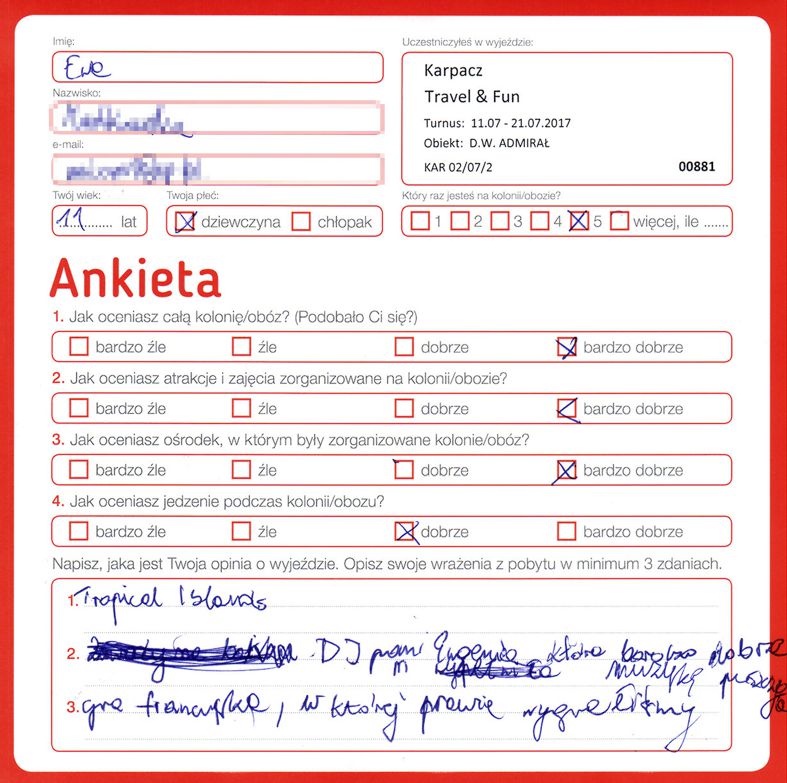 Imię:
Ewa
Nazwisko:
e-mail:
Twój wiek:
11 lat
Twoja płeć:
dziewczyna
chłopak
Uczestniczyłeś w wyjeździe:
Karpacz
Travel & Fun
Turnus: 11.07 - 21.07.2017
Obiekt: D.W. ADMIRAŁ
KAR 02/07/2 00881
Który raz jesteś na kolonii/obozie?
1 2 3 4 5 więcej, ile .......
Ankieta
1. Jak oceniasz całą kolonię/obóz? (Podobało Ci się?)
bardzo źle źle dobrze bardzo dobrze
2. Jak oceniasz atrakcje i zajęcia zorganizowane na kolonii/obozie?
bardzo źle źle dobrze bardzo dobrze
3. Jak oceniasz ośrodek, w którym były zorganizowane kolonie/obóz?
bardzo źle źle dobrze bardzo dobrze
4. Jak oceniasz jedzenie podczas kolonii/obozu?
bardzo źle źle dobrze bardzo dobrze
Napisz, jaka jest Twoja opinia o wyjeździe. Opisz swoje wrażenia z pobytu w minimum 3 zdaniach.
1. Tropical Islands
2. DJ pani Eugenia która bardzo dobrze
muzykę puszczała
3. gra francuska, w której prawie wygraliśmy